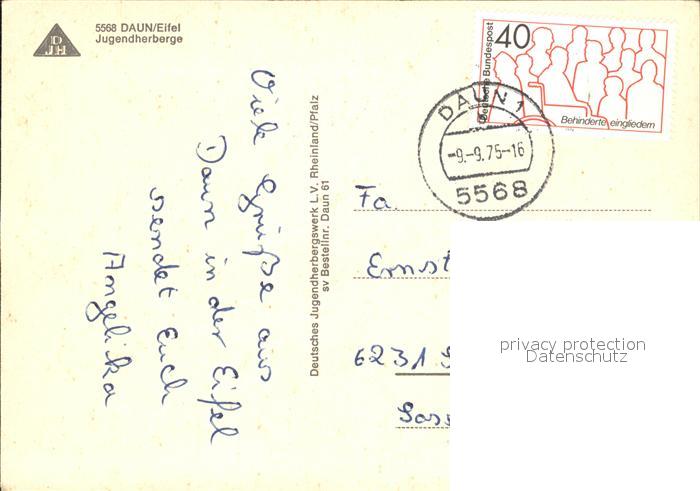 DJH
5568 DAUN/Eifel
Jugendherberge
Viele Grüße aus
Daun in der Eifel
sendet Euch
Angelika
Deutsches Jugendherbergswerk L.V. Rheinland/Pfalz
sv Bestellnr. Daun 61
Deutsche Bundespost
40
Behinderte eingliedern
DAUN 1
-9.-9.75-16
5568
Fa.
Ernst
6231
privacy protection
Datenschutz